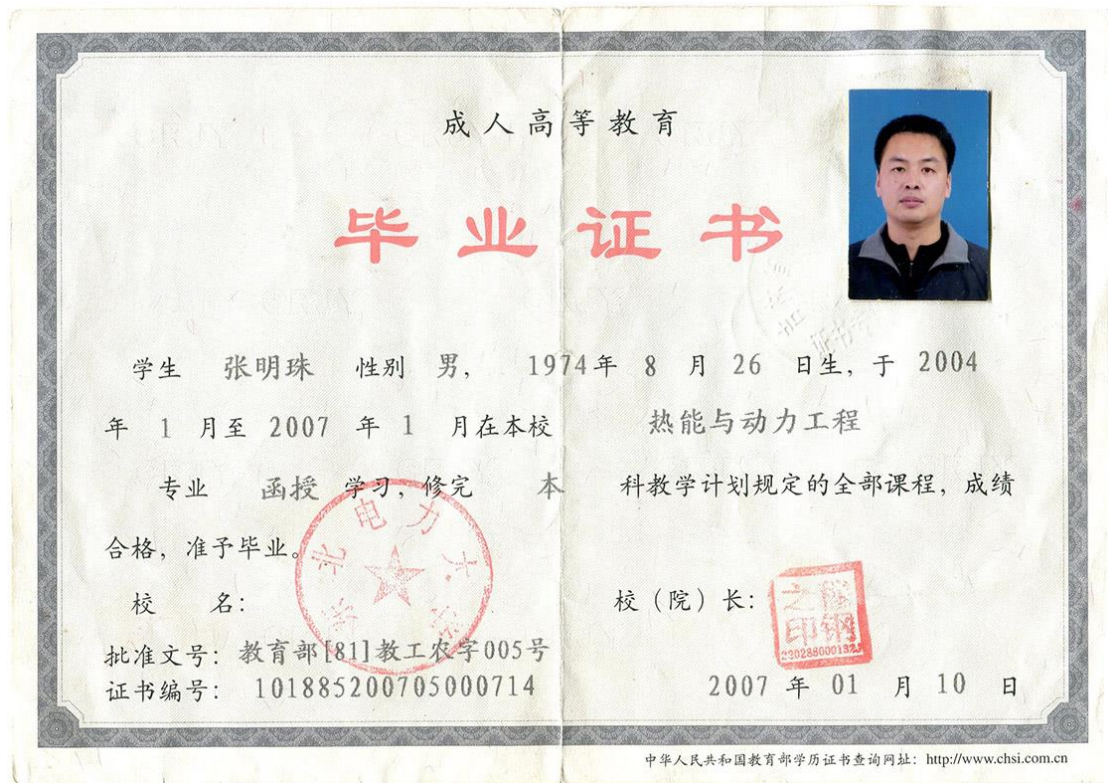 成人高等教育
毕业证书
学生 张明珠 性别 男, 1974年 8 月 26 日生, 于 2004
年 1 月至 2007 年 1 月在本校 热能与动力工程
专业 函授 学习, 修完 本 科教学计划规定的全部课程, 成绩
合格, 准予毕业。
东北电力大学
校 名:
校（院）长:
之印
钢
批准文号: 教育部[81]教工农字005号
证书编号: 101885200705000714
2007 年 01 月 10 日
中华人民共和国教育部学历证书查询网址: http://www.chsi.com.cn